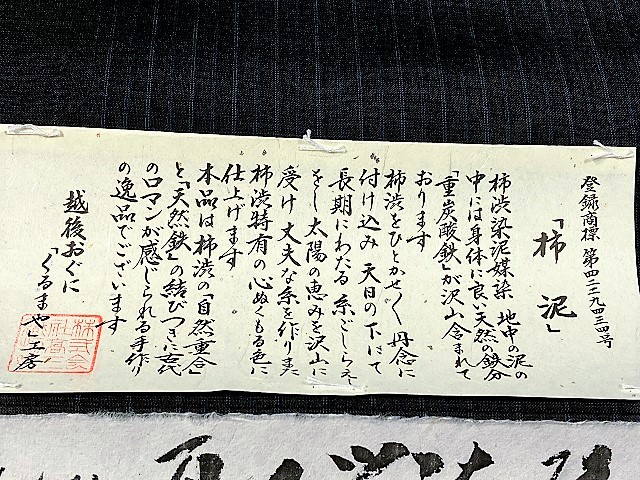 登録商標 第四二二九四三四号
「柿 泥」
柿渋染泥媒染 地中の泥の
中には身体に良い天然の鉄分
「重炭酸鉄」が沢山含まれて
おります
柿渋をひとかせ〱丹念に
付け込み 天日の下にて
長期にわたる 糸ごしらえ
をし 太陽の恵みを沢山に
受け 丈夫な糸を作りまた
柿渋特有の心ぬくもる色に
仕上げます
本品は柿渋の「自然重合」
と「天然鉄」の結びつきに古代
のロマンが感じられる手作り
の逸品でございます
越後おぐに
「くるまや」工房
株式会